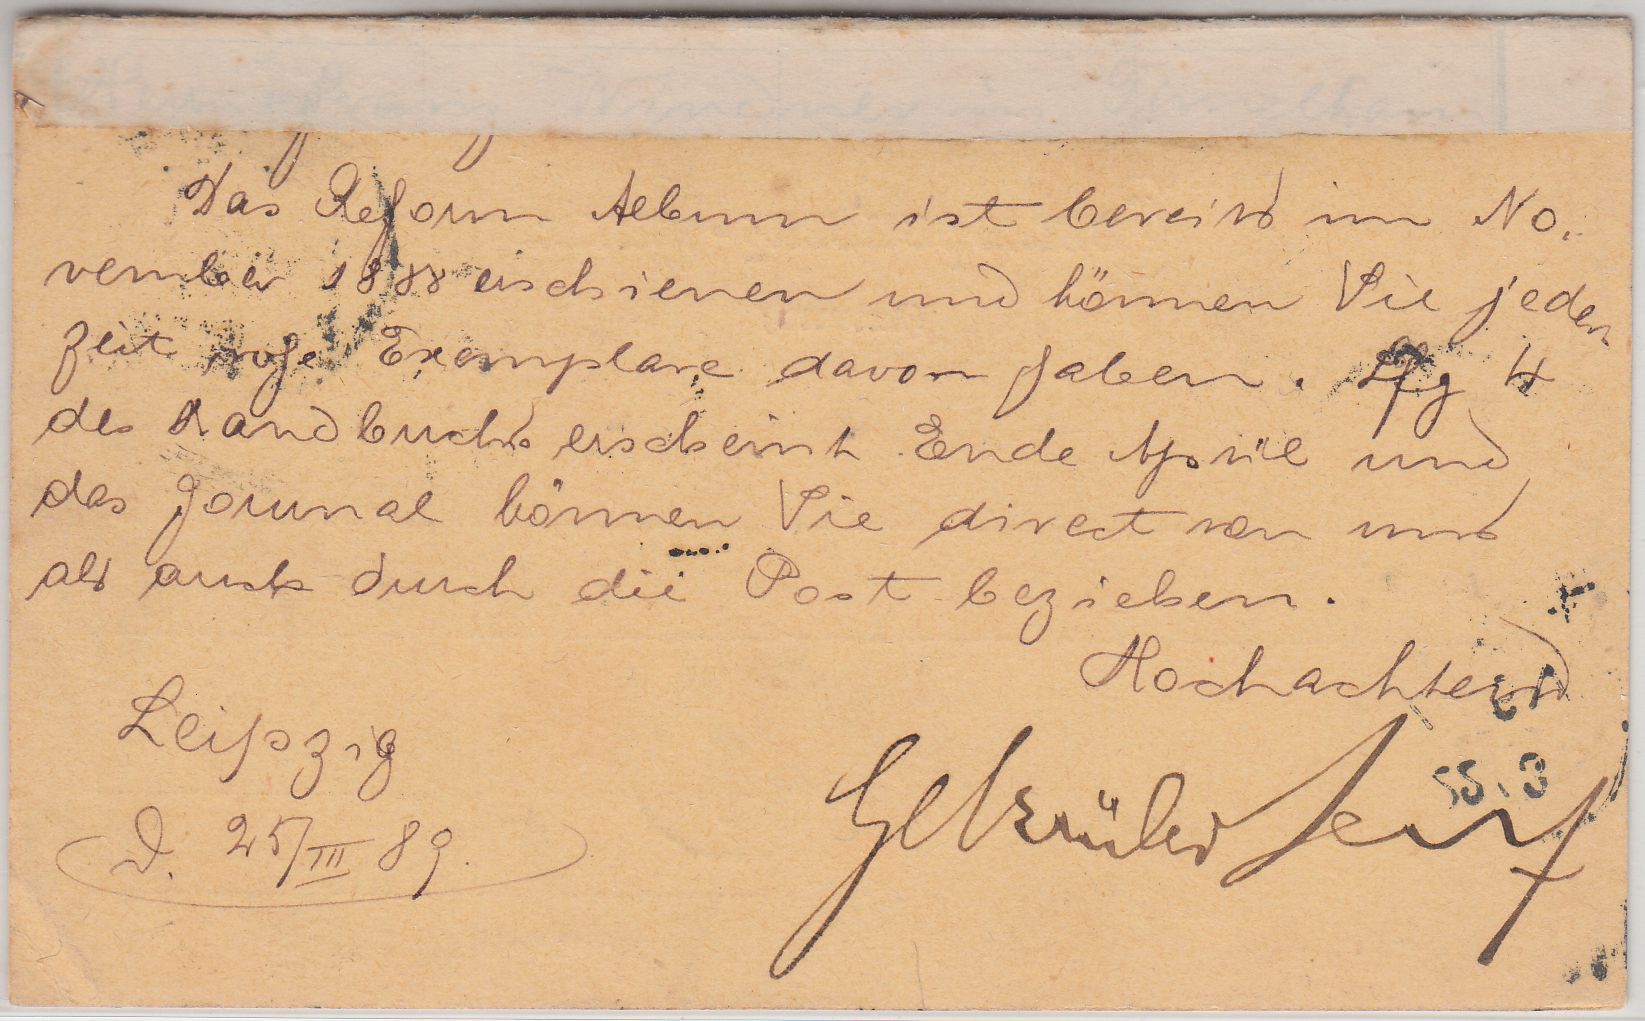 Das Reform Album ist bereits im No-
vember 1888 erschienen und können Sie jeder
zeit Exemplare davon haben. Lfg 4
des Handbuchs erscheint Ende April und
das Journal können Sie direct von uns
als auch durch die Post beziehen.
Hochachtend
Leipzig
d. 25/III 89.
Gebrüder Senf